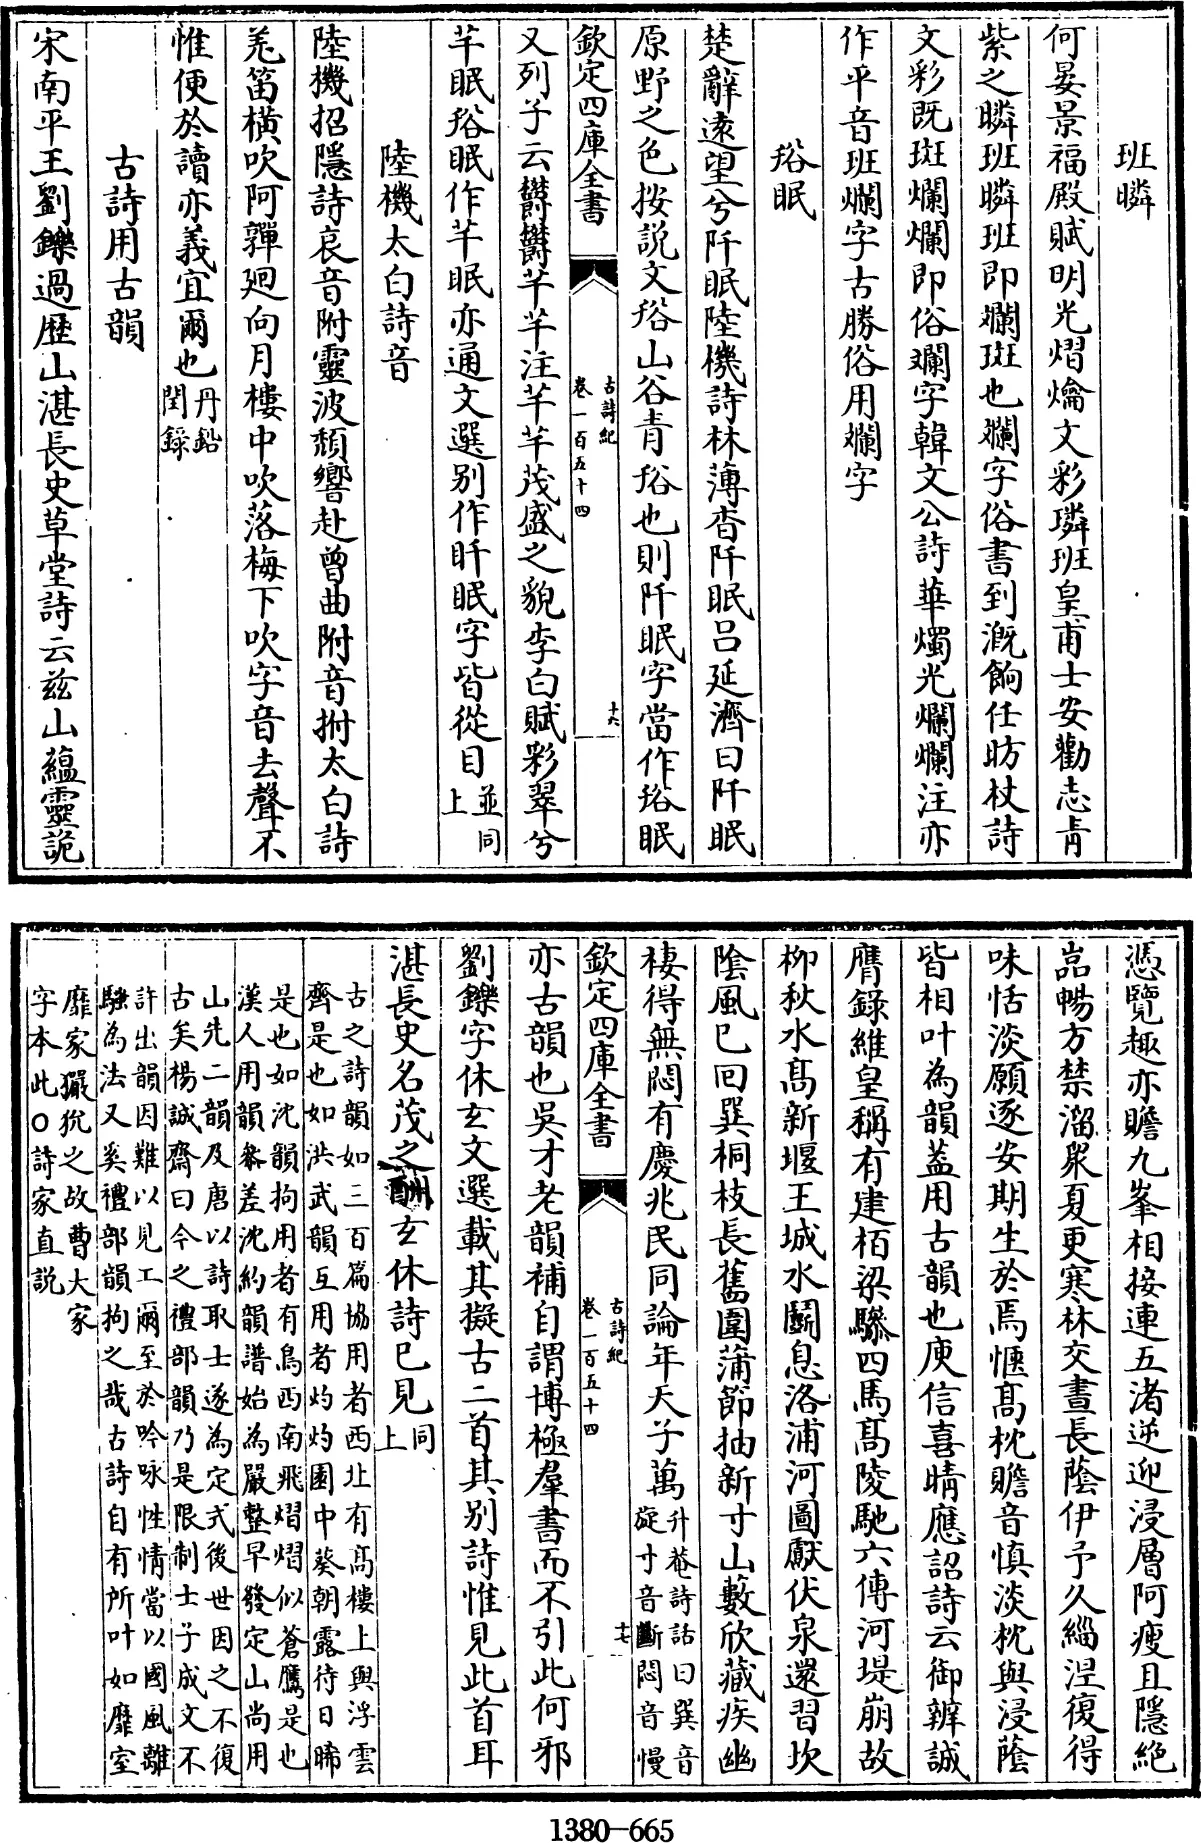 班瞵
何晏景福殿賦明光熠爚文彩璘班皇甫士安勸志青
紫之瞵班瞵班即斕斑也斕字俗書到漑餉任昉杖詩
文彩既斑斕斕即俗斕字韓文公詩華燭光爛爛注亦
作平音班斕字古勝俗用斕字
谸眠
楚辭遠望兮阡眠陸機詩林薄杳阡眠呂延濟曰阡眠
原野之色按説文谸山谷青谸也則阡眠字當作谸眠
欽定四庫全書
古詩紀
卷一百五十四
十六
又列子云鬱鬱芊芊注芊芊茂盛之貌李白賦彩翠兮
芊眠谸眠作芊眠亦通文選别作盰眠字皆從目並同
上
陸機太白詩音
陸機招隱詩哀音附靈波頽響赴曾曲附音拊太白詩
羌笛横吹阿嚲廻向月樓中吹落梅下吹字音去聲不
惟便於讀亦義宜爾也丹鉛
閏録
古詩用古韻
宋南平王劉鑠過歷山湛長史草堂詩云兹山藴靈詭
憑覽趣亦贍九峯相接連五渚逆迎浸層阿瘦且隱絶
嵓暢方禁溜衆夏更寒林交晝長蔭伊予久緇涅復得
味恬淡願逐安期生於焉愜髙枕贍音慎淡枕與浸蔭
皆相叶為韻葢用古韻也庾信喜晴應詔詩云御辨誠
膺錄維皇稱有建栢梁驂四馬髙陵馳六傳河堤崩故
柳秋水髙新堰王城水鬭息洛浦河圖獻伏泉還習坎
陰風已回巽桐枝長舊圍蒲節抽新寸山藪欣藏疾幽
棲得無悶有慶兆民同論年天子萬升菴詩話曰巽音
旋寸音斷悶音慢
欽定四庫全書
古詩紀
卷一百五十四
十七
亦古韻也吳才老韻補自謂博極羣書而不引此何邪
劉鑠字休玄文選載其擬古二首其别詩惟見此首耳
湛長史名茂之酬玄休詩已見同
上
古之詩韻如三百篇協用者西北有髙樓上與浮雲
齊是也如洪武韻互用者灼灼園中葵朝露待日晞
是也如沈韻拘用者有鳥西南飛熠熠似蒼鷹是也
漢人用韻叅差沈約韻譜始為嚴整早發定山尚用
山先二韻及唐以詩取士遂為定式後世因之不復
古矣楊誠齋曰今之禮部韻乃是限制士子成文不
許出韻因難以見工爾至於吟咏性情當以國風離
騷為法又奚禮部韻拘之哉古詩自有所叶如靡室
靡家玁狁之故曹大家
字本此○詩家直説
1380—665